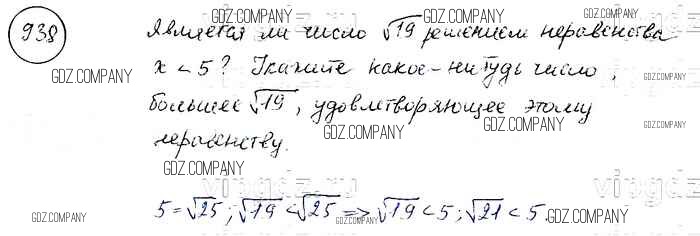 938
Является ли число √19 решением неравенства
x < 5? Укажите какое-нибудь число,
большее √19, удовлетворяющее этому
неравенству.
5 = √25; √19 < √25 => √19 < 5; √21 < 5
GDZ.COMPANY
GDZ.COMPANY
GDZ.COMPANY
GDZ.COMPANY
GDZ.COMPANY
GDZ.COMPANY
GDZ.COMPANY
GDZ.COMPANY
GDZ.COMPANY
GDZ.COMPANY
GDZ.COMPANY
GDZ.COMPANY
vipgdz.ru